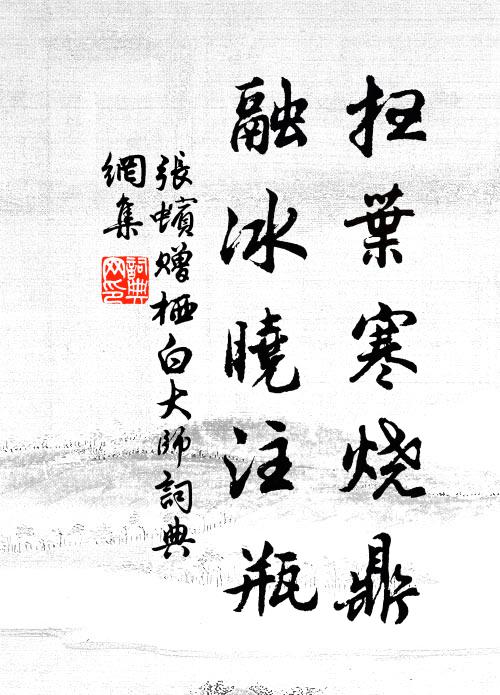 扫葉寒烧鼎
融冰曉注瓶
張蠙贈栖白大師詞典
網集
詞典
网印